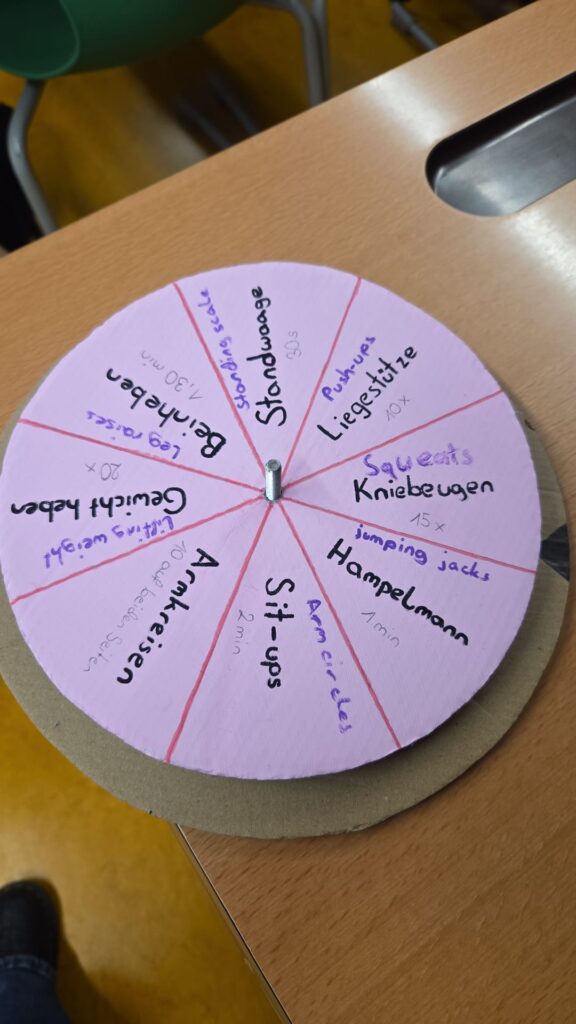 standing scale
Standwaage
30s
Push-ups
Liegestütze
10x
Squeats
Kniebeugen
15x
jumping jacks
Hampelmann
1 min
Arm circles
Sit-ups
2 min
Armkreisen
10 auf beiden Seiten
Lifting weight
Gewicht heben
20x
Leg raises
Beinheben
1,30 min